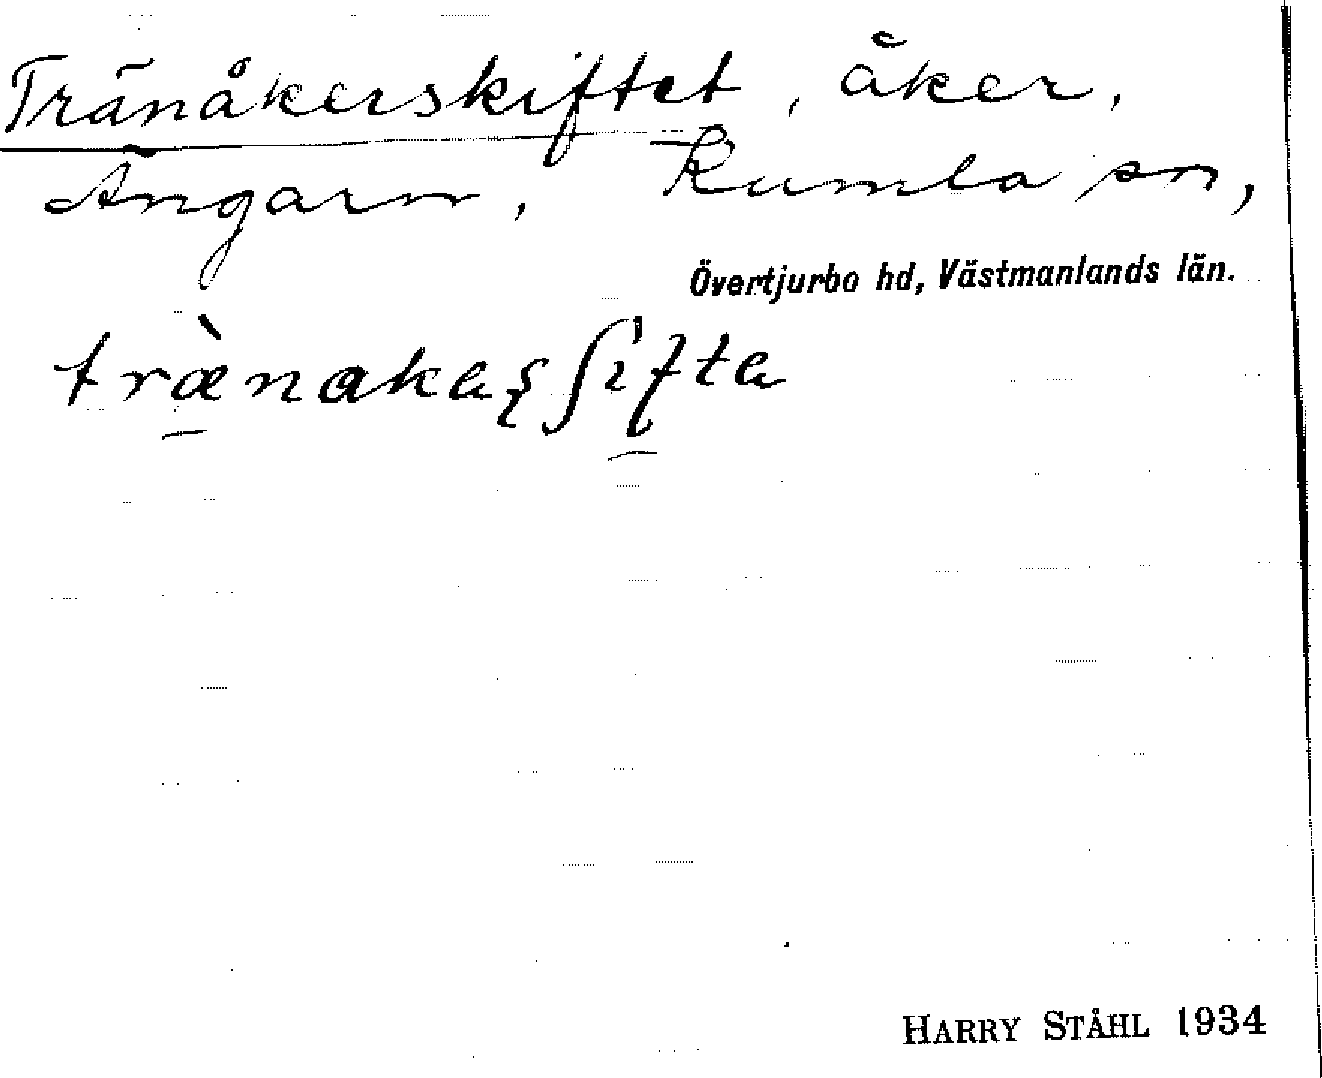 Tränåkerskiftet, åker,
Ängarn, Kumla sn,
Övertjurbo hd, Västmanlands län.
træ̀nakaʂʃifta
HARRY STÅHL 1934